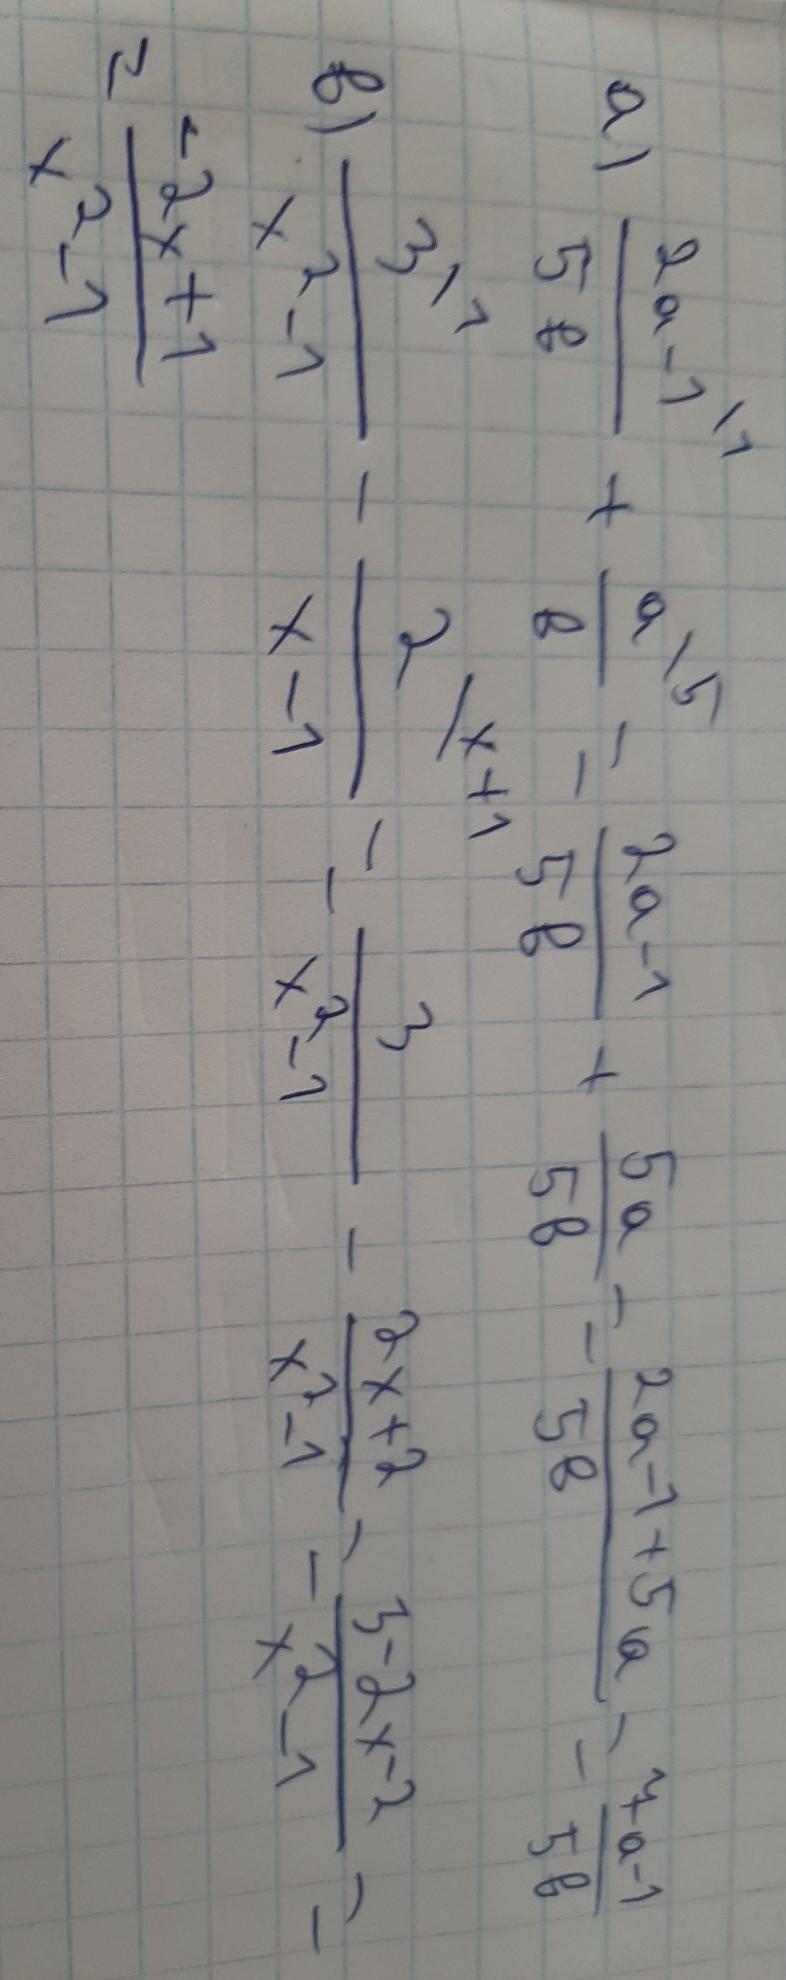 а) (2a-1)^{\1}/5b + a^{\5}/b = (2a-1)/5b + 5a/5b = (2a-1+5a)/5b = (7a-1)/5b
в) 3^{\1}/(x²-1) - 2^{/x+1}/(x-1) = 3/(x²-1) - (2x+2)/(x²-1) = (3-2x-2)/(x²-1) =
= (-2x+1)/(x²-1)